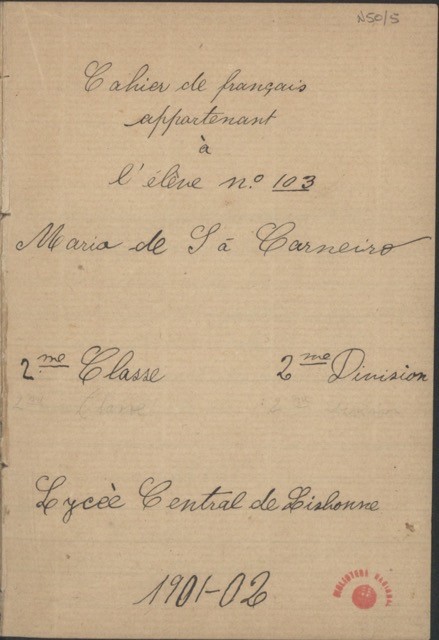 N50/5
Cahier de français
appartenant
à
l'élève n.º 103
Mario de Sá Carneiro
2me Classe 2me Division
2me Classe 2me Division
Lycèe Central de Lisbonne
1901-02
BIBLIOTECA NACIONAL